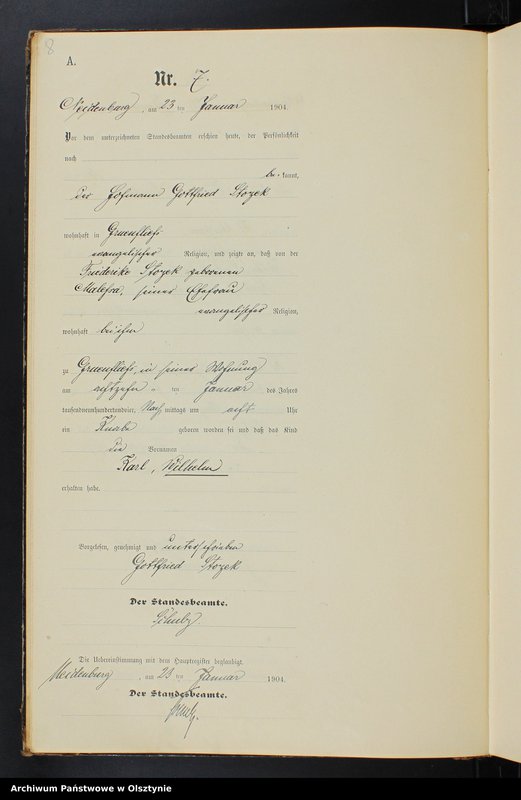 8
A.
Nr. 7.
Neidenburg, am 23 ten Januar 1904.
Vor dem unterzeichneten Standesbeamten erschien heute, der Persönlichkeit
nach
be- kannt,
der Hofmann Gottfried Stozek
wohnhaft in Gruenfliess
evangelischer Religion, und zeigte an, daß von der
Friederike Stozek geborenen
seiner Ehefrau
evangelischer Religion,
wohnhaft bei ihm
zu Gruenfliess, in seiner Wohnung
am achtzehn ten Januar des Jahres
tausendneunhundertundvier, Nach mittags um acht Uhr
ein Knabe geboren worden sei und daß das Kind
die Vornamen
Karl, Wilhelm
erhalten habe.
Vorgelesen, genehmigt und unterschrieben
Gottfried Stozek
Der Standesbeamte.
Schulz.
Die Uebereinstimmung mit dem Hauptregister beglaubigt.
Neidenburg, am 23 ten Januar 1904.
Der Standesbeamte.
Archiwum Państwowe w Olsztynie